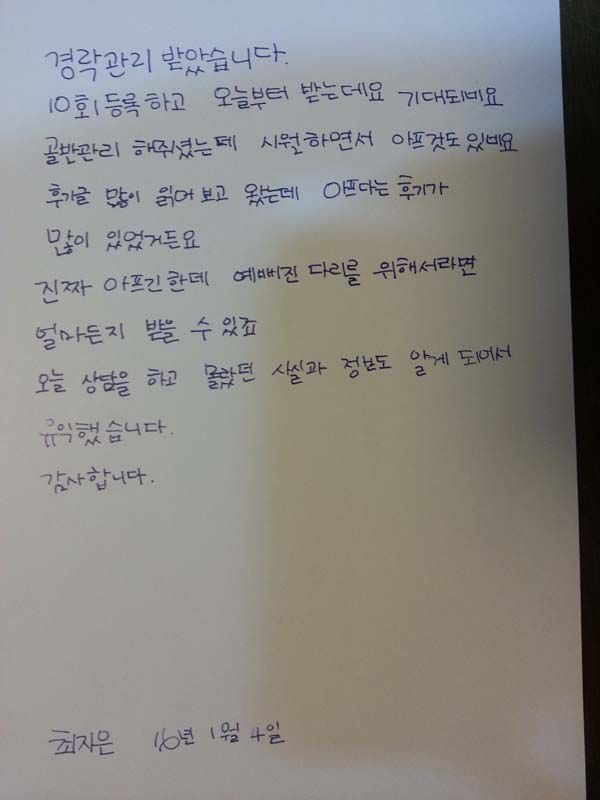 경락관리 받았습니다.
10회 등록하고 오늘부터 받는데요 기대되네요
골반관리 해주셨는데 시원하면서 아프것도 있네요
후기글 많이 읽어보고 왔는데 아프다는 후기가
많이 있었거든요
진짜 아프긴한데 예뻐진 다리를 위해서라면
얼마든지 받을 수 있죠
오늘 상담을 하고 몰랐던 사실과 정보도 알게 되어서
유익했습니다.
감사합니다.
최자은 16년 1월 4일